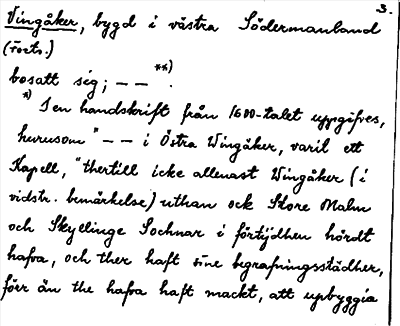 3.
Vingåker, bygd i västra Södermanland
(Forts.)
bosatt sig; — — **).
*) I en handskrift från 1600-talet uppgifves,
hurusom " — — i Östra Wingåker, varit ett
Kapell, "thertill icke allenast Wingåker (i
vidstr. bemärkelse) uthan ock Store Malm
och Skyllinge Sochnar i förtijdhen hördt
hafva, och ther haft sine begrafningsstädher,
förr än the hafva haft mackt, att upbyggia